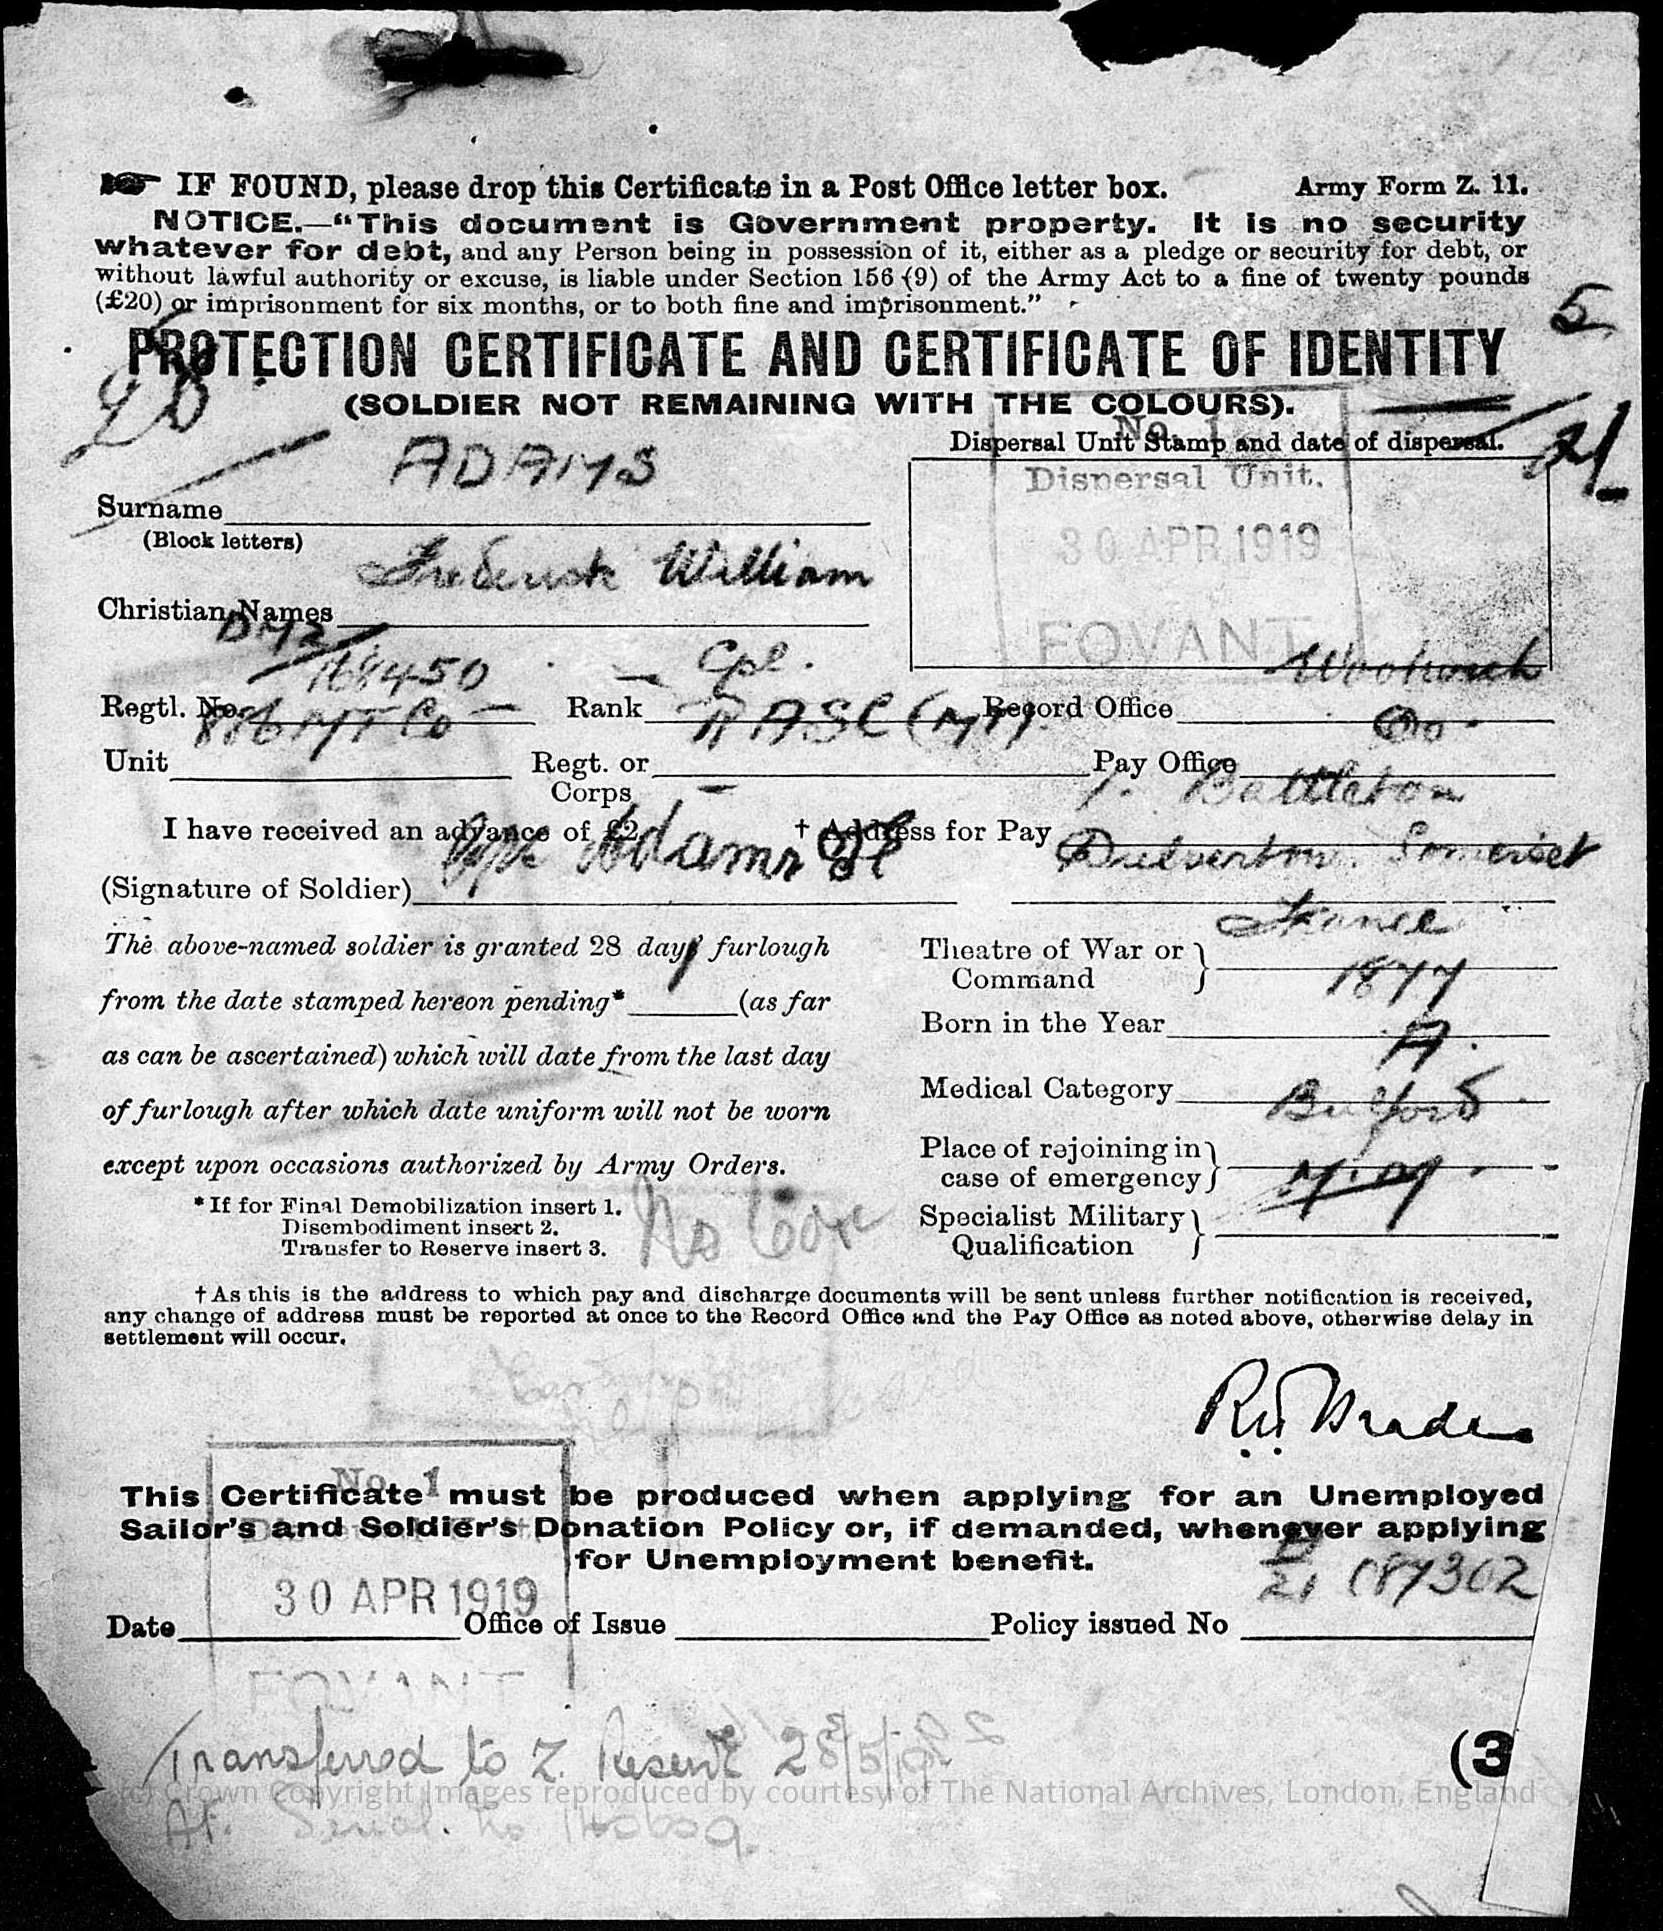 IF FOUND, please drop this Certificate in a Post Office letter box. Army Form Z. 11.
NOTICE.—"This document is Government property. It is no security
whatever for debt, and any Person being in possession of it, either as a pledge or security for debt, or
without lawful authority or excuse, is liable under Section 156 (9) of the Army Act to a fine of twenty pounds
(£20) or imprisonment for six months, or to both fine and imprisonment."
5
PROTECTION CERTIFICATE AND CERTIFICATE OF IDENTITY
(SOLDIER NOT REMAINING WITH THE COLOURS).
Dispersal Unit Stamp and date of dispersal.
No. 1
Dispersal Unit.
30 APR 1919
FOVANT
Surname ADAMS
(Block letters)
Christian Names Frederick William
Regtl. No. DM2/168450 Rank Cpl. Record Office Woolwich
Unit 886 MT Co Regt. or Corps RASC (MT). Pay Office Do.
I have received an advance of £2. † Address for Pay 1. Battleton
Dulverton. Somerset
(Signature of Soldier) Cpl Adams
The above-named soldier is granted 28 days' furlough
from the date stamped hereon pending* (as far
as can be ascertained) which will date from the last day
of furlough after which date uniform will not be worn
except upon occasions authorized by Army Orders.
* If for Final Demobilization insert 1.
Disembodiment insert 2.
Transfer to Reserve insert 3.
Theatre of War or Command France
Born in the Year 1877
Medical Category A.
Place of rejoining in case of emergency Bulford
Specialist Military Qualification
† As this is the address to which pay and discharge documents will be sent unless further notification is received,
any change of address must be reported at once to the Record Office and the Pay Office as noted above, otherwise delay in
settlement will occur.
This Certificate must be produced when applying for an Unemployed
Sailor's and Soldier's Donation Policy or, if demanded, whenever applying
for Unemployment benefit.
No. 1
30 APR 1919
FOVANT
Date Office of Issue Policy issued No 087302
Transferred to Z. Reserve 28/5/19
(3
(c) Crown Copyright Images reproduced by courtesy of The National Archives, London, England